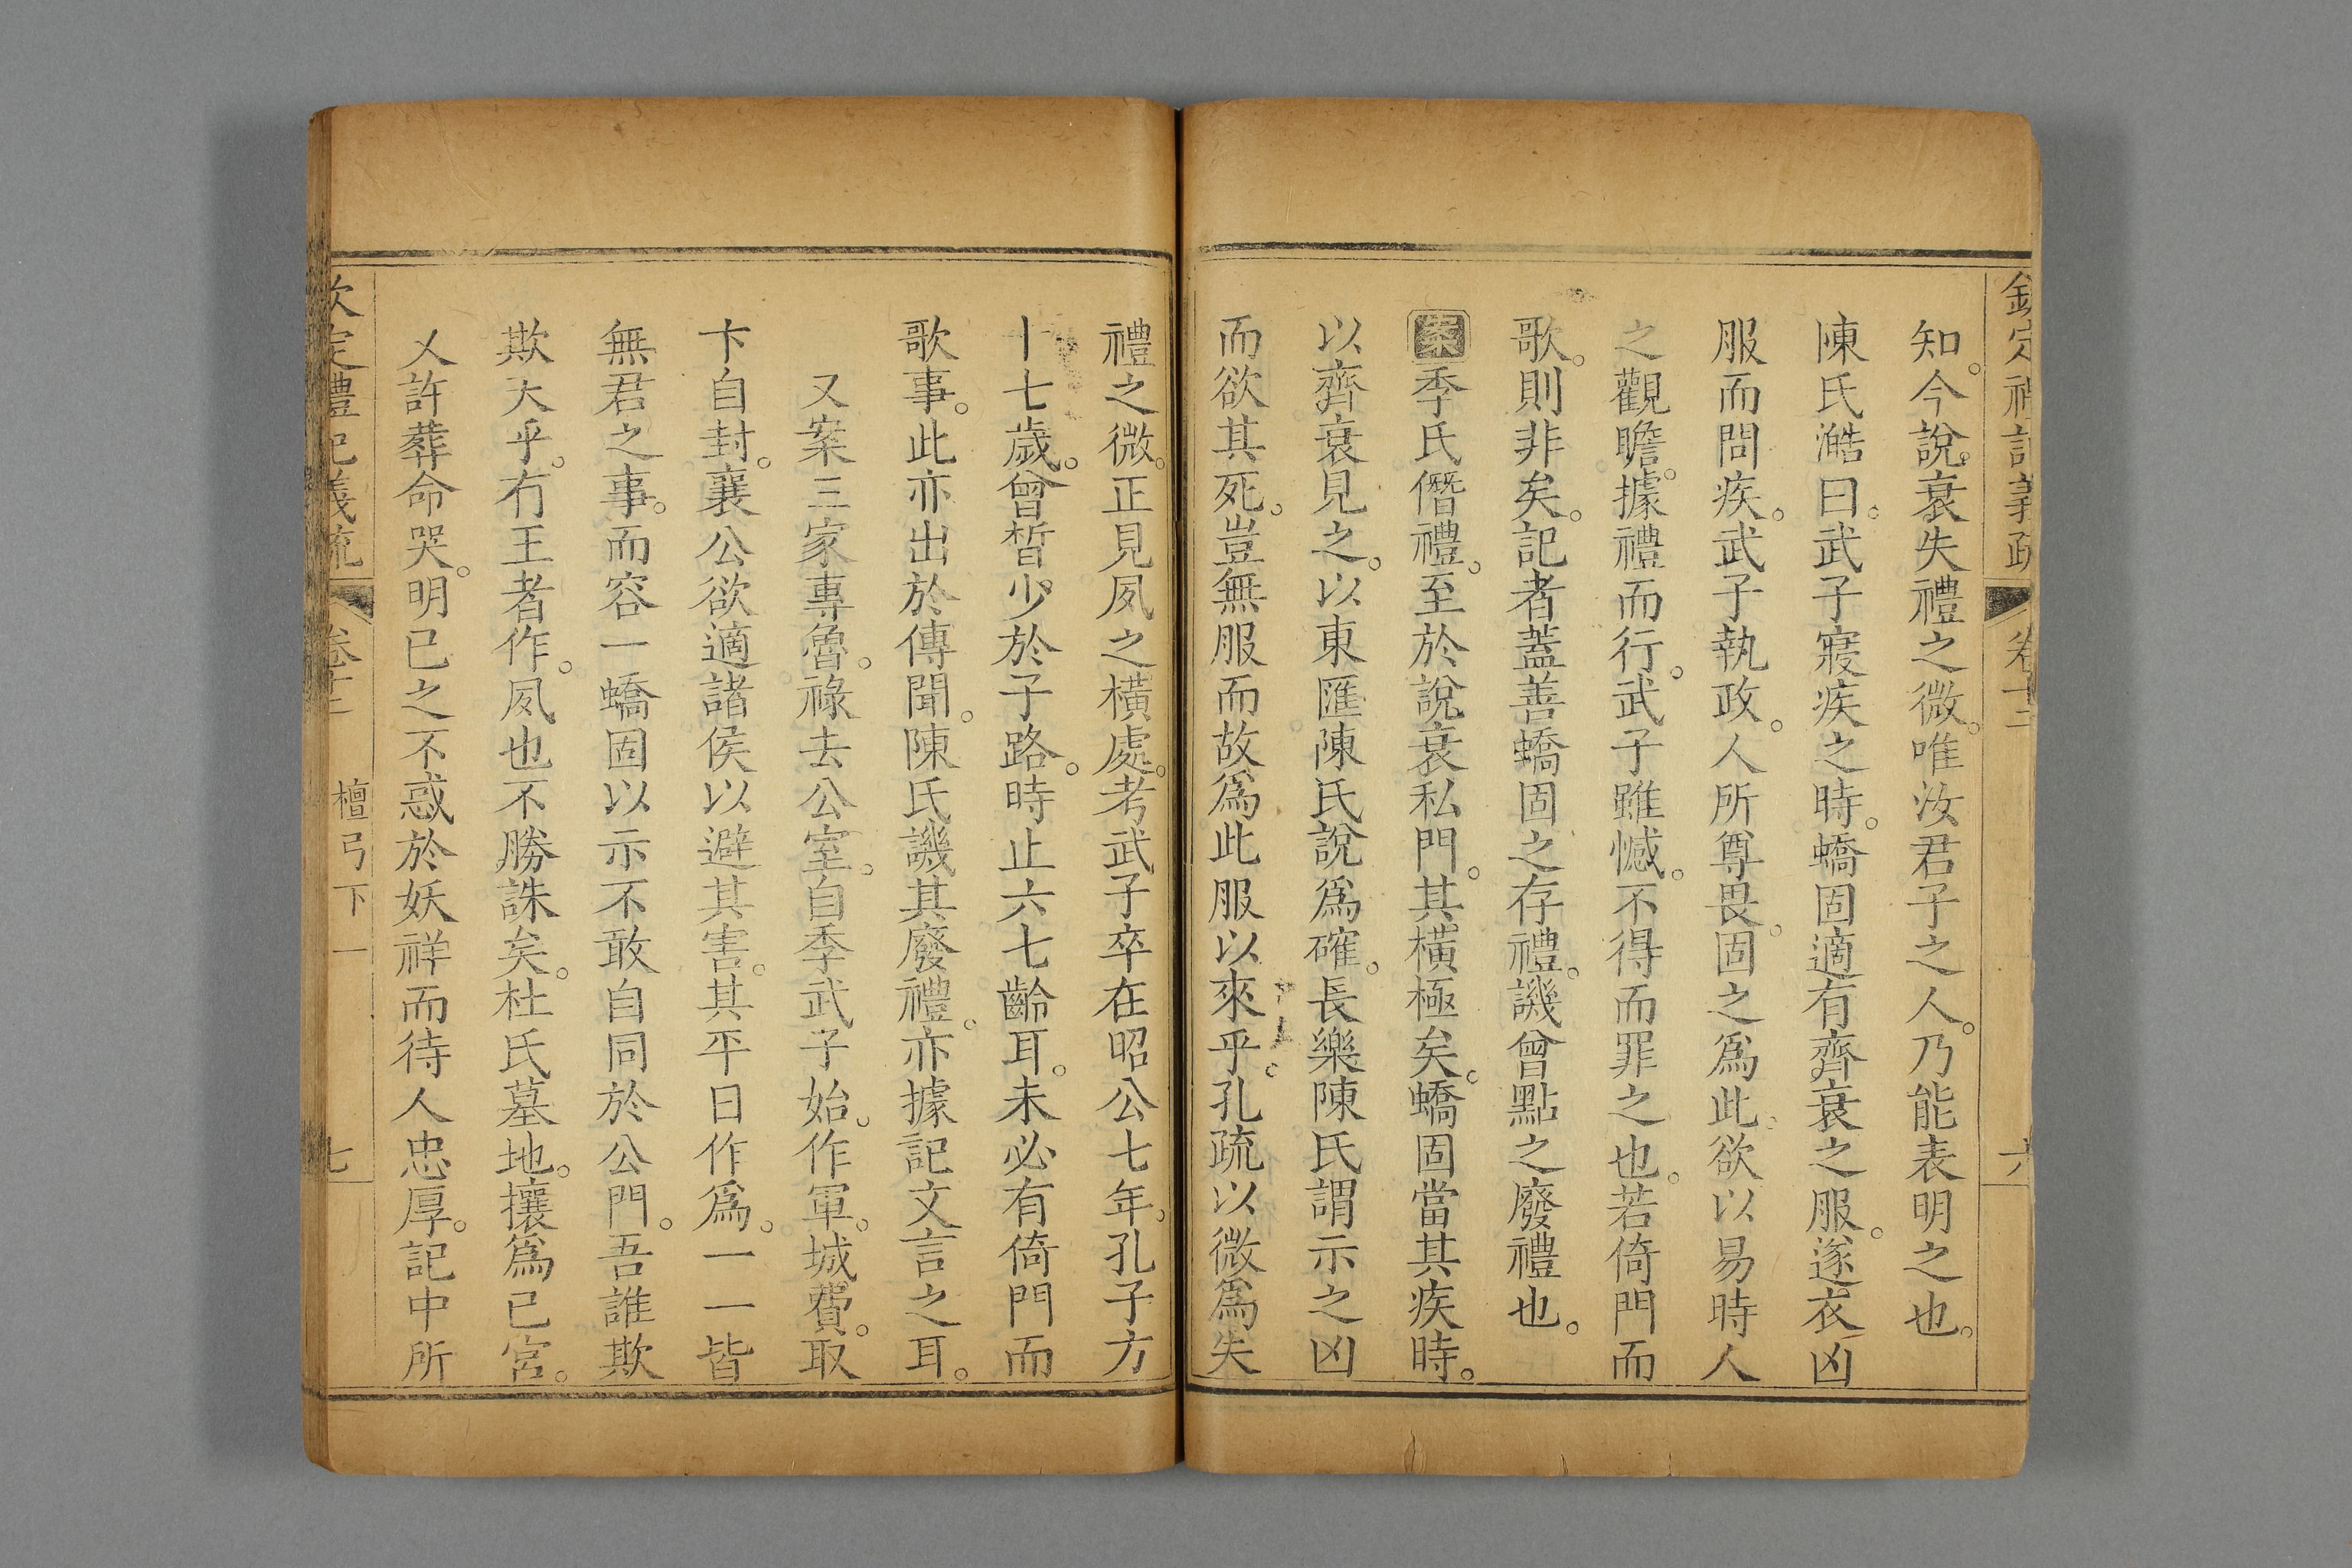 欽定禮記義疏 卷十二 六
知。今說。衰失禮之微。唯汝君子之人。乃能表明之也。
陳氏澔曰。武子寢疾之時。蟜固適有齊衰之服。遂衣凶
服而問疾。武子執政。人所尊畏。固之爲此。欲以易時人
之觀瞻。據禮而行。武子雖憾。不得而罪之也。若倚門而
歌。則非矣。記者蓋善蟜固之存禮。譏曾點之廢禮也。
案季氏僭禮。至於說衰私門。其橫極矣。蟜固當其疾時。
以齊衰見之。以東匯陳氏說爲確。長樂陳氏謂示之凶
而欲其死。豈無服而故爲此服以來乎。孔疏以微爲失
禮之微。正見夙之橫處。考武子卒在昭公七年。孔子方
十七歲。曾晳少於子路。時止六七齡耳。未必有倚門而
歌事。此亦出於傳聞。陳氏譏其廢禮。亦據記文言之耳。
又案三家專魯。祿去公室。自季武子始。作軍。城費。取
卞自封。襄公欲適諸侯以避其害。其平日作爲。一一皆
無君之事。而容一蟜固以示不敢自同於公門。吾誰欺
欺大乎。有王者作。夙也不勝誅矣。杜氏墓地。攘爲己宮。
乂許葬命哭。明已之不惑於妖祥而待人忠厚。記中所
欽定禮記義疏 卷十二 檀弓下一 七